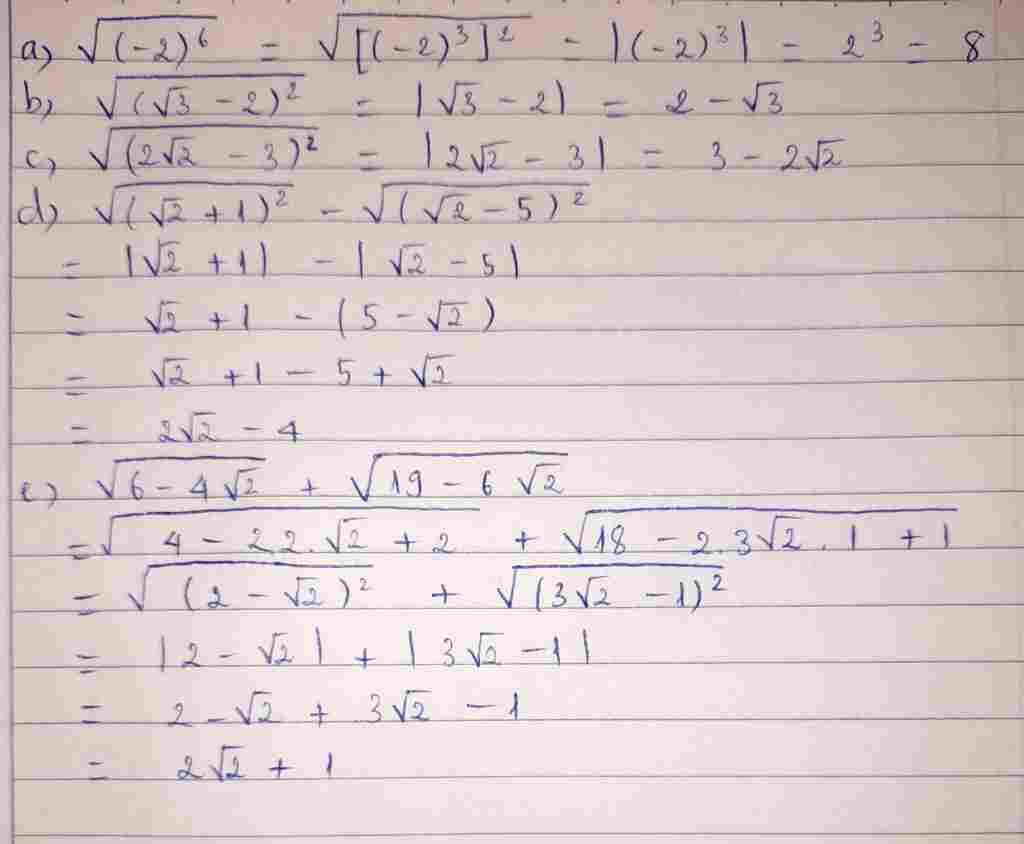 a) √(-2)⁶ = √[(-2)³]² = |(-2)³| = 2³ = 8
b) √(√3 - 2)² = |√3 - 2| = 2 - √3
c) √(2√2 - 3)² = |2√2 - 3| = 3 - 2√2
d) √(√2 + 1)² - √(√2 - 5)²
= |√2 + 1| - |√2 - 5|
= √2 + 1 - (5 - √2)
= √2 + 1 - 5 + √2
= 2√2 - 4
e) √6 - 4√2 + √19 - 6√2
= √4 - 2 2.√2 + 2 + √18 - 2.3√2.1 + 1
= √(2 - √2)² + √(3√2 - 1)²
= |2 - √2| + |3√2 - 1|
= 2 - √2 + 3√2 - 1
= 2√2 + 1